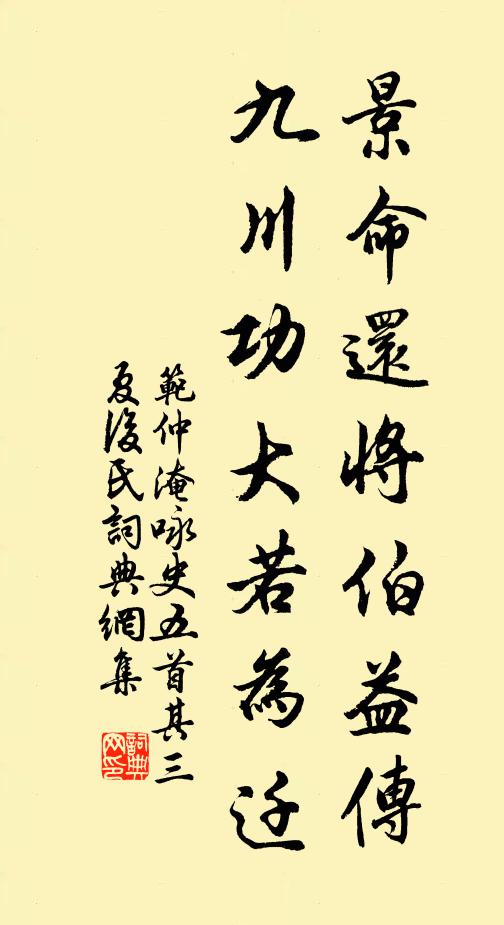 景命還將伯益傳
九川功大若為迁
範仲淹咏史五首其三
夏後氏詞典網集
詞典
网印